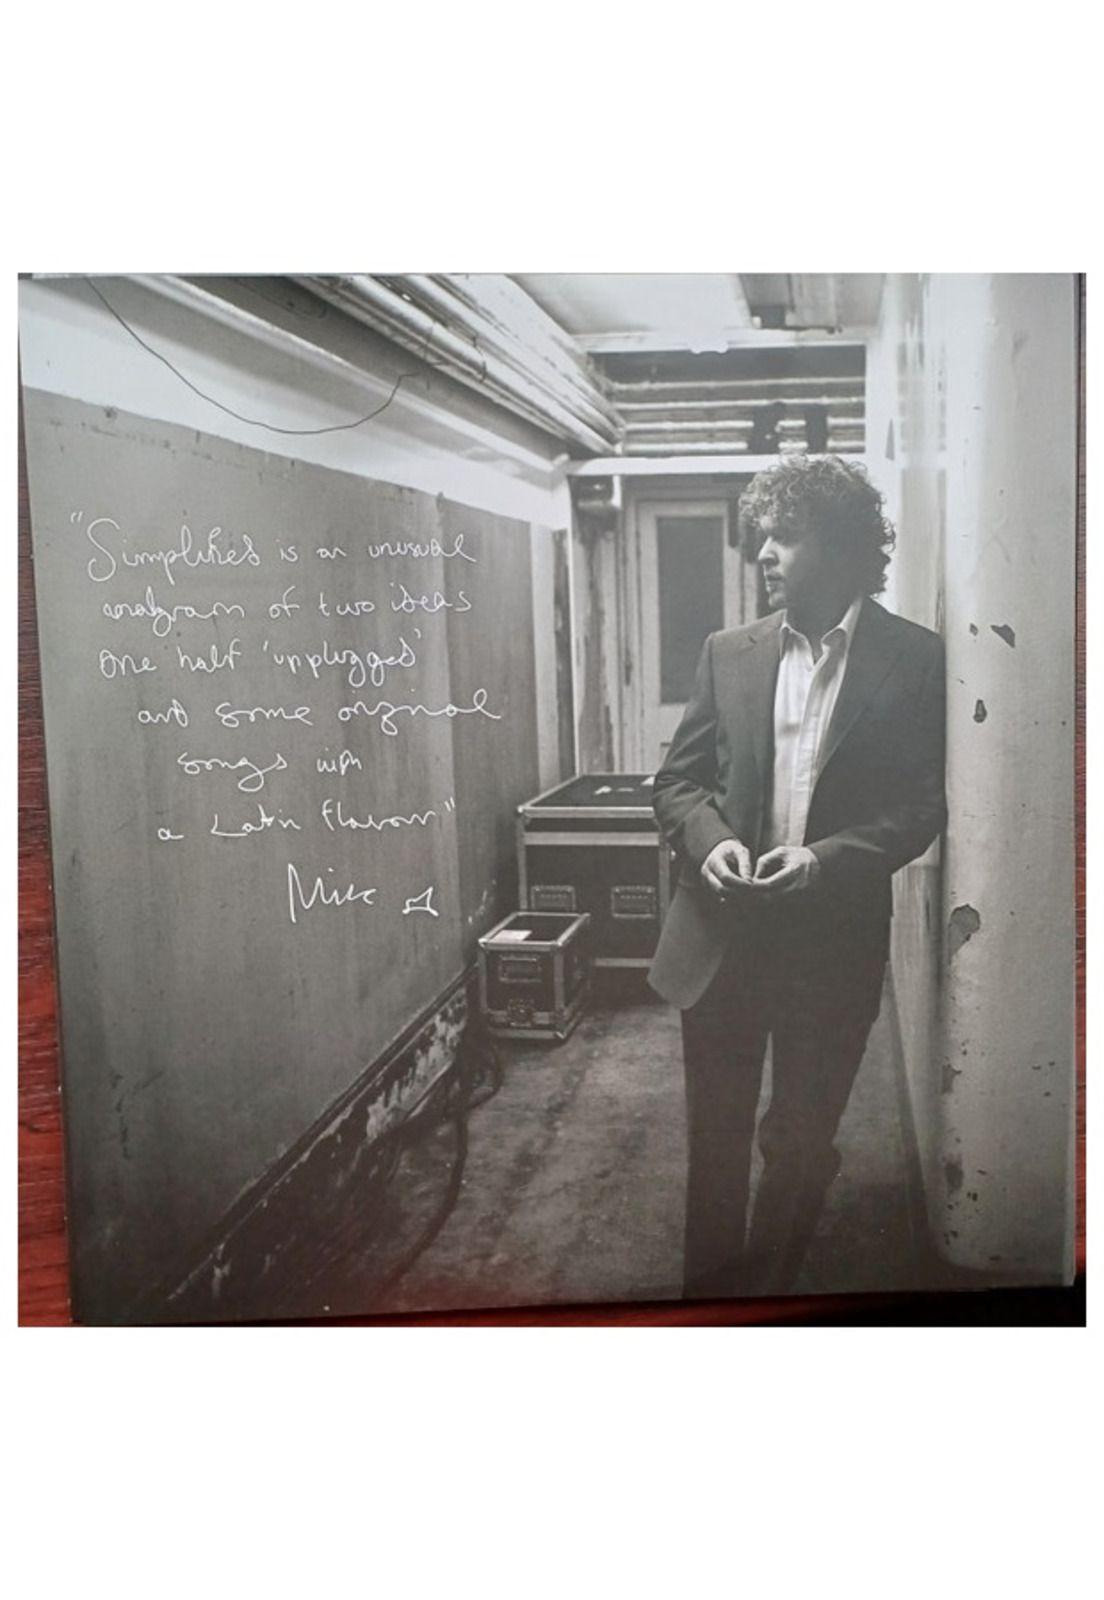 "Simplified is an unusual
analgram of two ideas
one half 'unplugged'
and some original
songs with
a Latin flavour"
Mick